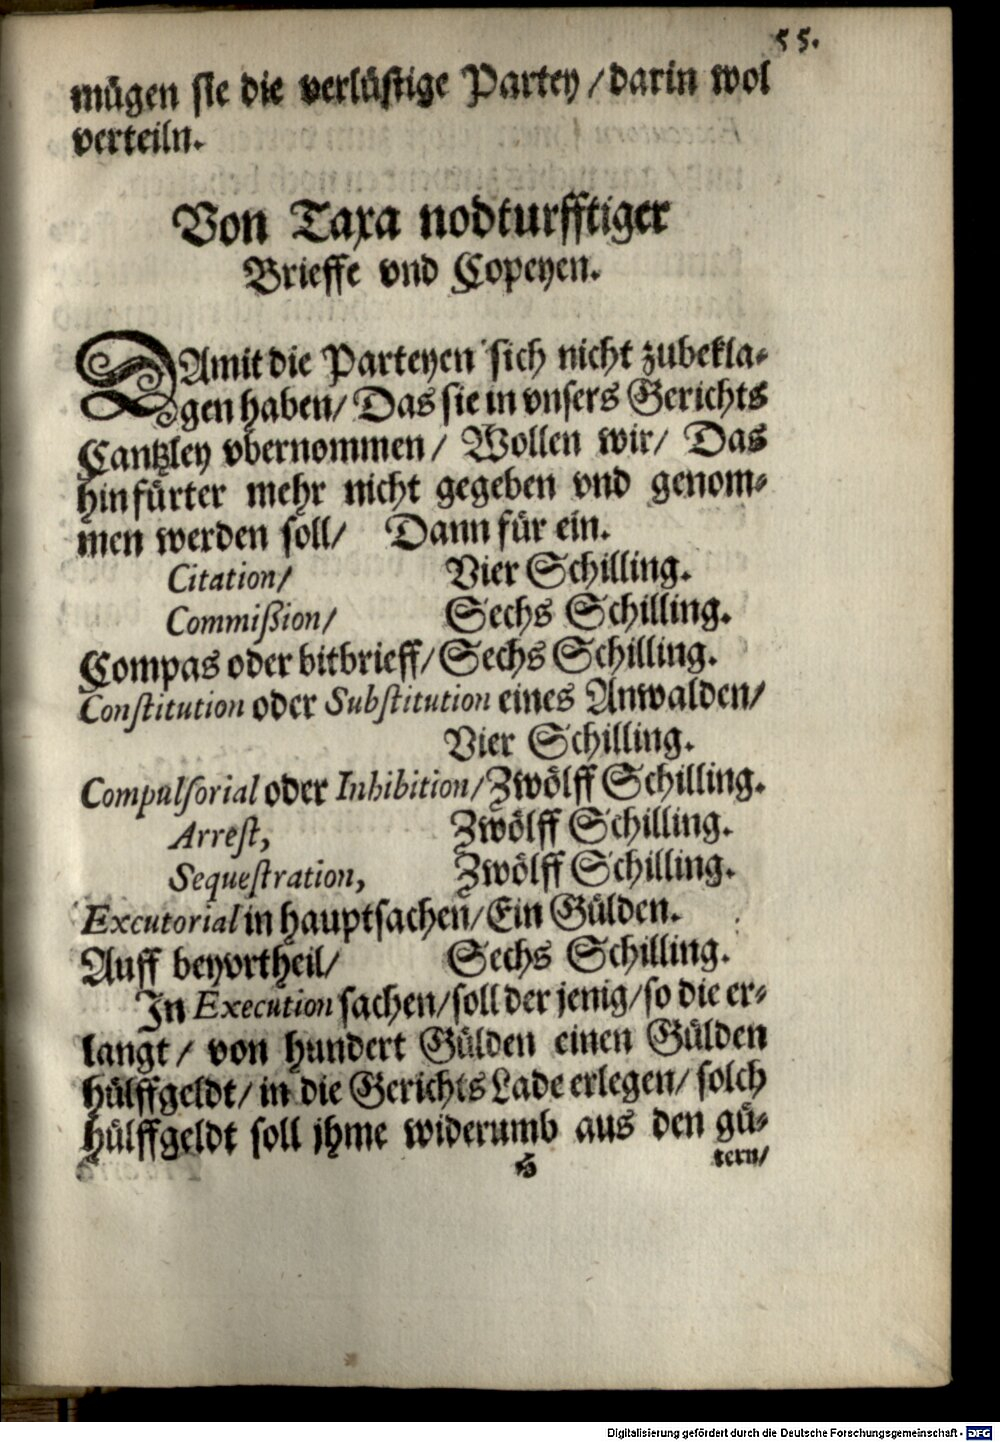 55.
mügen sie die verlüstige Partey / darin wol
verteiln.
Von Taxa nodturfftiger
Brieffe vnd Copeyen.
DAmit die Parteyen sich nicht zubekla-
gen haben / Das sie in vnsers Gerichts
Cantzley vbernommen / Wollen wir / Das
hinfürter mehr nicht gegeben vnd genom-
men werden soll / Dann für ein.
Citation / Vier Schilling.
Commißion / Sechs Schilling.
Compas oder bitbrieff / Sechs Schilling.
Constitution oder Substitution eines Anwalden /
Vier Schilling.
Compulsorial oder Inhibition / Zwölff Schilling.
Arrest, Zwölff Schilling.
Sequestration, Zwölff Schilling.
Excutorial in hauptsachen / Ein Gülden.
Auff beyvrtheil / Sechs Schilling.
In Execution sachen / soll der jenig / so die er-
langt / von hundert Gülden einen Gülden
hülffgeldt / in die Gerichts Lade erlegen / solch
hülffgeldt soll jhme widerumb aus den gü-
H tern /
Digitalisierung gefördert durch die Deutsche Forschungsgemeinschaft - DFG